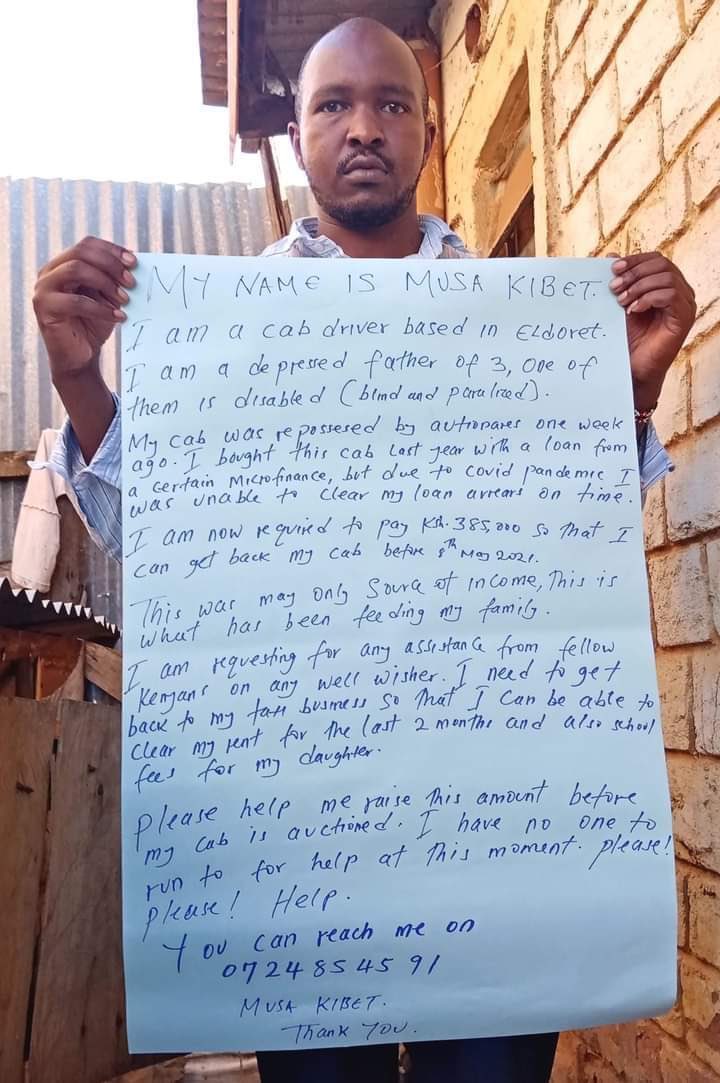 MY NAME IS MUSA KIBET.
I am a cab driver based in Eldoret.
I am a depressed father of 3, One of
them is disabled (blind and paralized).
My cab was repossesed by autionares one week
ago. I bought this cab last year with a loan from
a certain Microfinance, but due to covid pandemic I
was unable to clear my loan arrears on time.
I am now required to pay Ksh. 385,000 so that I
can get back my cab before 8th May 2021.
This was may only Source of income, This is
what has been feeding my family.
I am requesting for any assistance from fellow
Kenyans on any well wisher. I need to get
back to my taxi business so that I can be able to
clear my rent for the last 2 months and also school
fees for my daughter.
Please help me raise this amount before
my cab is auctioned. I have no one to
run to for help at this moment. please!
please! Help.
You can reach me on
0724854591
MUSA KIBET.
Thank YOU.